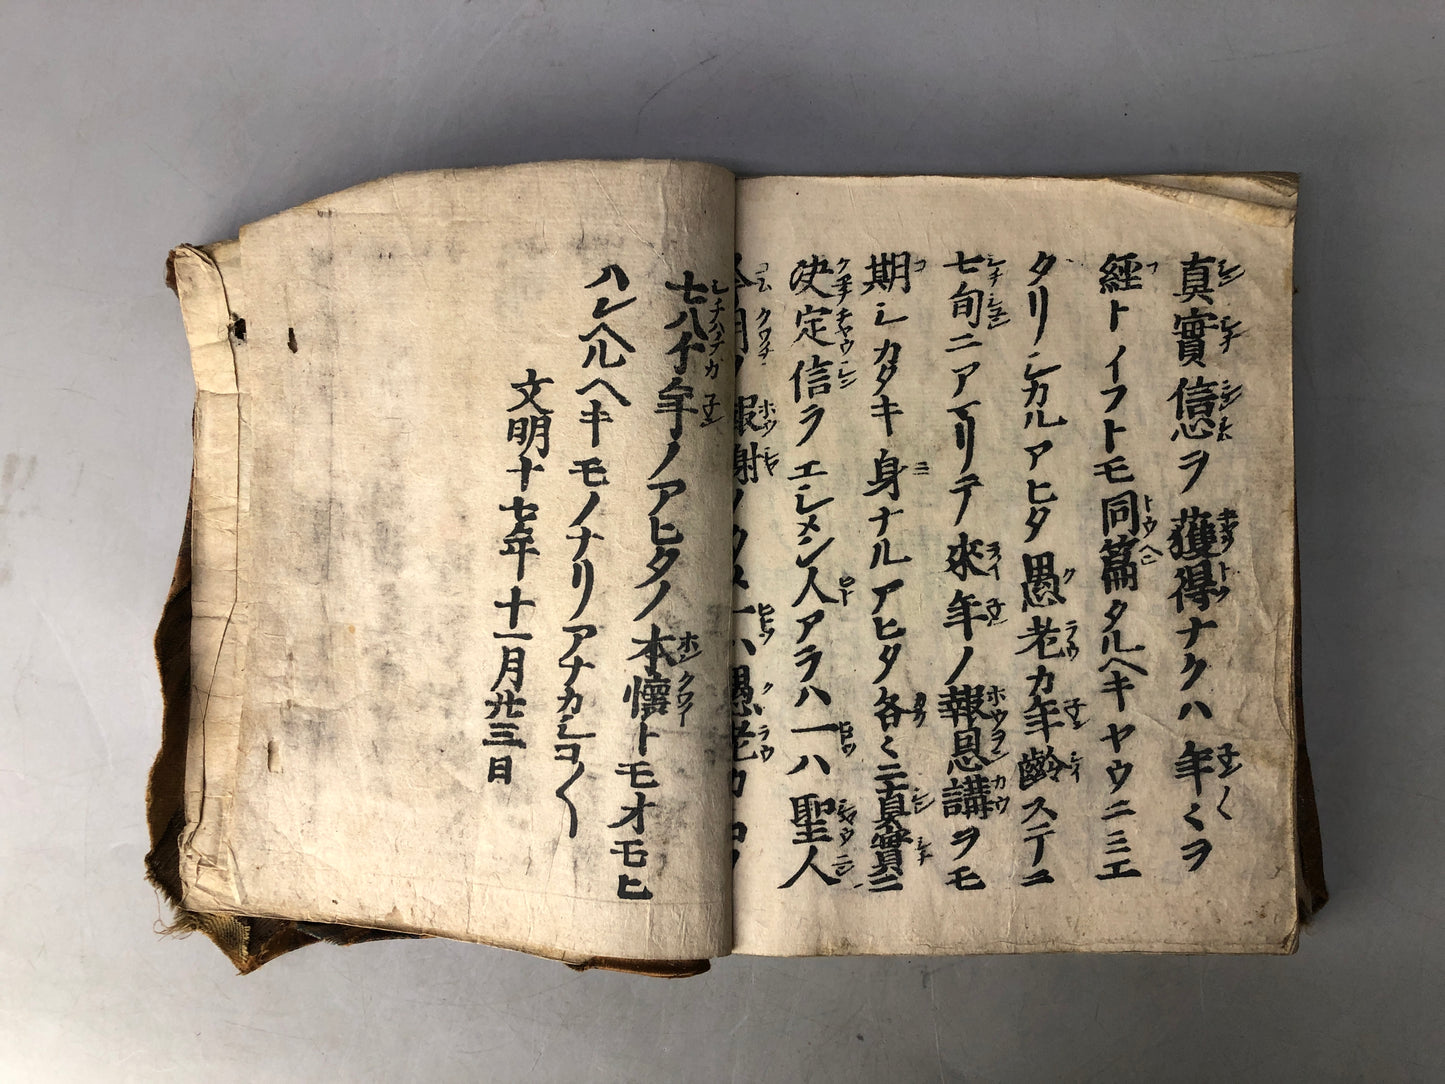 真實信心ヲ獲得ナクハ年〻ヲ
經トイフトモ同篇タルヘキヤウニミエ
タリシカルアヒタ愚老カ年齡ステニ
七旬ニアマリテ來年ノ報恩講ヲモ
期シカタキ身ナルアヒタ各〻ニ眞實ニ
决定信ヲエシメン人アラハ一ハ聖人
今月ノ報謝ノタメ一ハ愚老カコノ
七八ケ年ノアヒタノ本懷トモオモヒ
ハンヘルヘキモノナリアナカシコ〱
文明十七年十一月廿三日